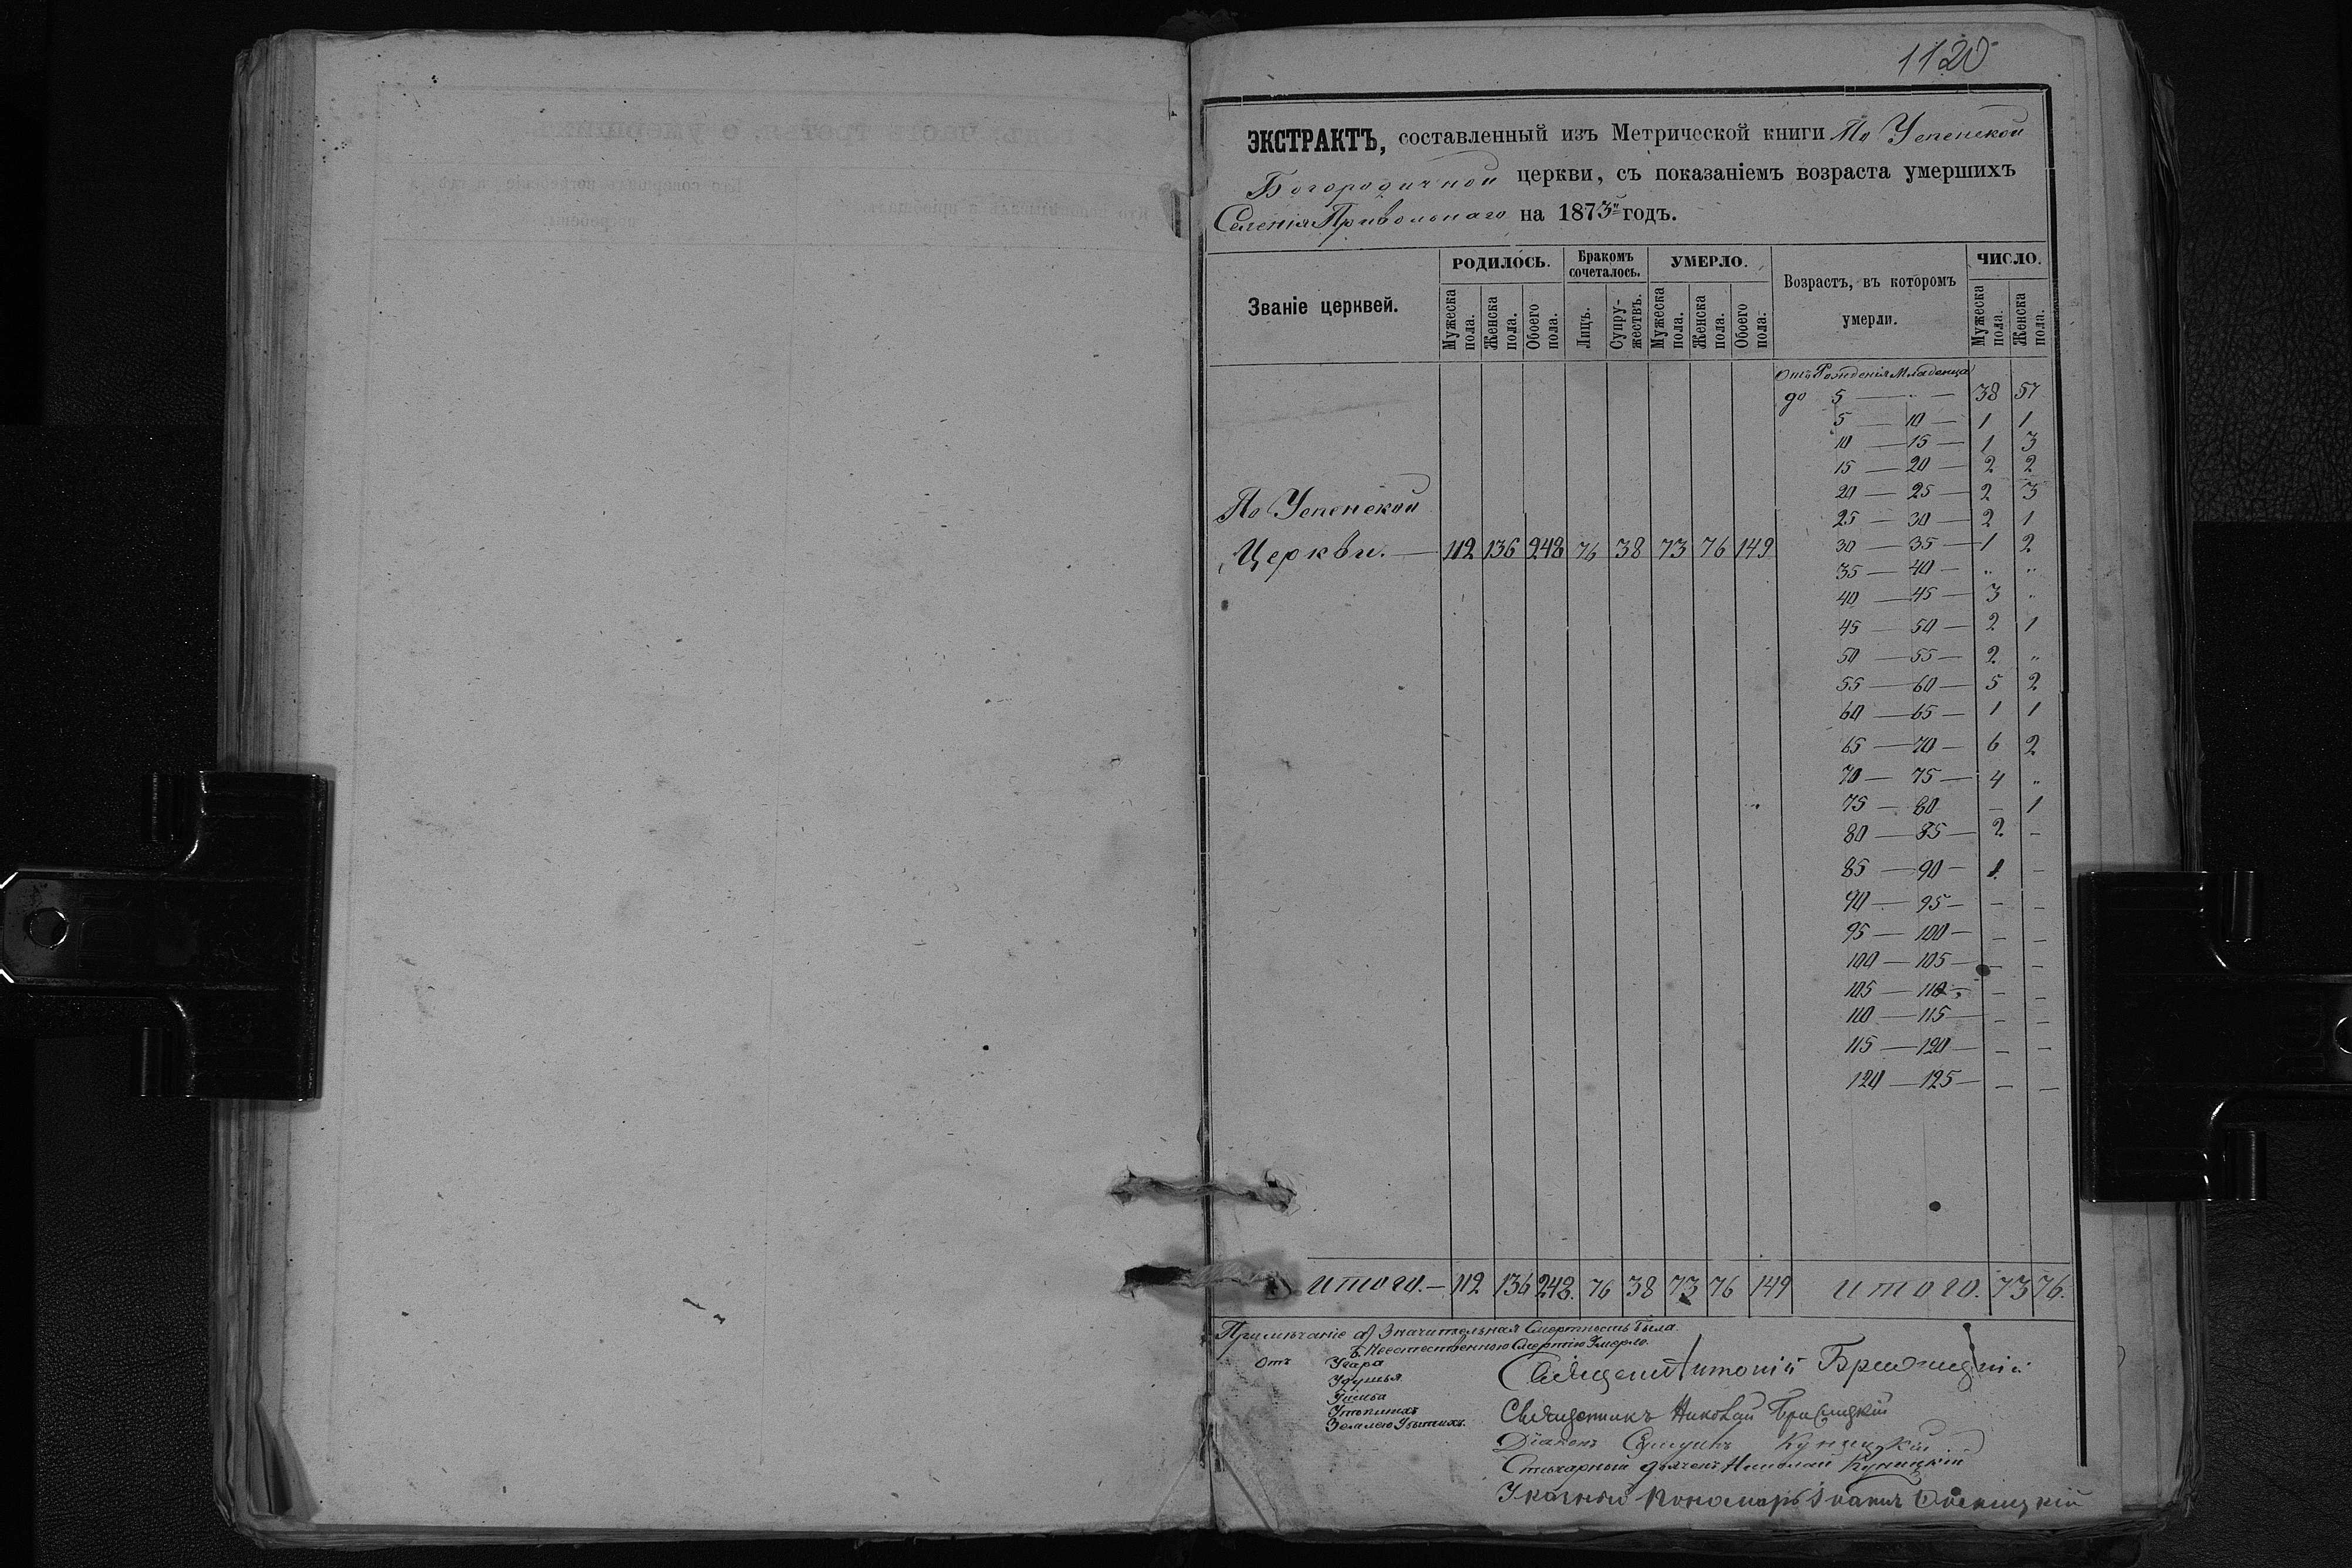 1120
ЭКСТРАКТЪ, составленный изъ Метрической книги По Успенской
Богородичной церкви, съ показаніемъ возраста умершихъ
Селенія Привольнаго на 1873й годъ.
Званіе церквей. РОДИЛОСЬ. Бракомъ сочеталось. УМЕРЛО. Возрастъ, въ которомъ умерли. ЧИСЛО.
Мужеска пола. Женска пола. Обоего пола. Лицъ. Супружествъ. Мужеска пола. Женска пола. Обоего пола. Мужеска пола. Женска пола.
Отъ Рожденія Младенца
до 5 — — 38 57
5 — 10 — 1 1
10 — 15 — 1 3
15 — 20 — 2 2
20 — 25 — 2 3
25 — 30 — 2 1
30 — 35 — 1 2
35 — 40 — " "
40 — 45 — 3 "
45 — 50 — 2 1
50 — 55 — 2 "
55 — 60 — 5 2
60 — 65 — 1 1
65 — 70 — 6 2
70 — 75 — 4 "
75 — 80 — 1
80 — 85 — 2 —
85 — 90 — 1. —
90 — 95 — — —
95 — 100 — — —
100 — 105 — — —
105 — 110 — — —
110 — 115 — — —
115 — 120 — — —
120 — 125 — — —
По Успенской
Церкви. — 112 136 248 76 38 73 76 149
Итого. — 112 136 248. 76 38 73 76 149 Итого. 73 76.
Примѣчаніе а) Значительная Смертность была.
б. Неестественною Смертію Умерло.
Отъ Угара
Удушья
Ушиба
Утопшихъ
Землею Убитыхъ.
Священ Антоній
Священникъ Николай
Діаконъ Куницкій
Стихарный дьячекъ Николай Куницкій
Указный Пономарь